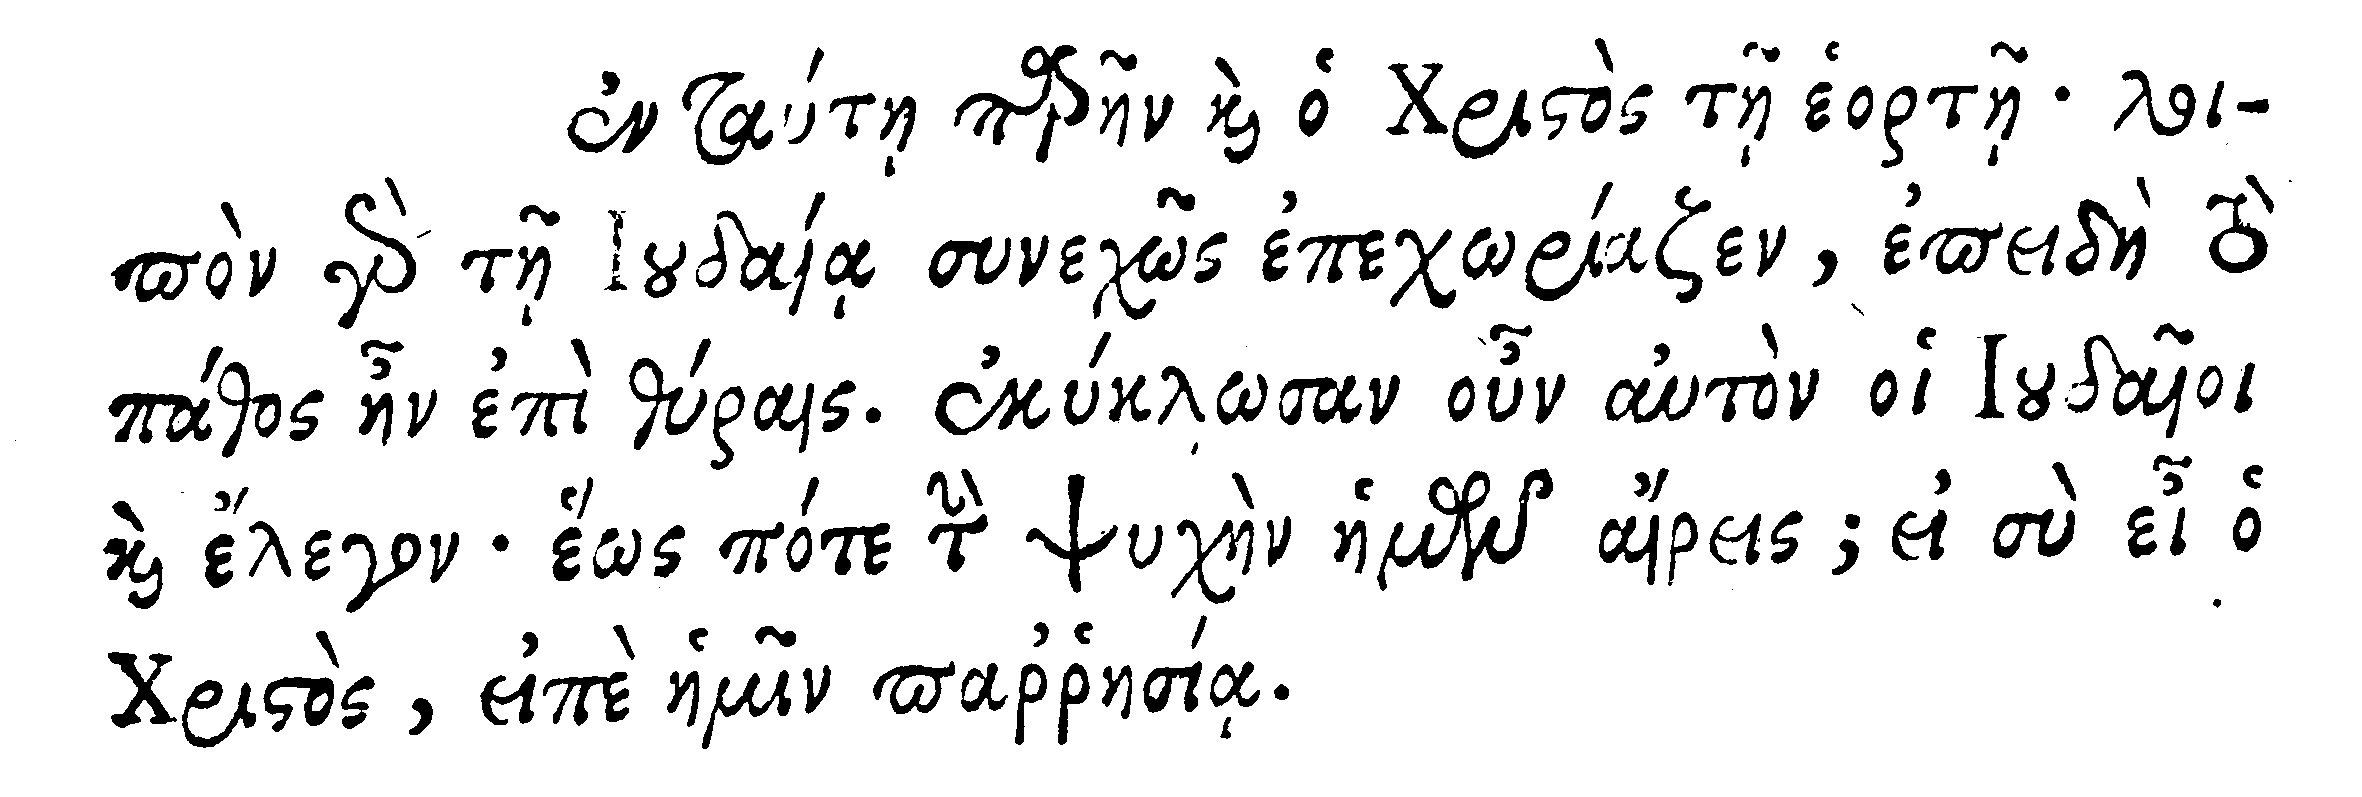 ἐν ταύτῃ παρῆν καὶ ὁ Χριστὸς τῇ ἑορτῇ· λοι-
πὸν γὰρ τῇ Ἰουδαίᾳ συνεχῶς ἐπεχωρίαζεν, ἐπειδὴ τὸ
πάθος ἦν ἐπὶ θύραις. ἐκύκλωσαν οὖν αὐτὸν οἱ Ἰουδαῖοι
καὶ ἔλεγον· ἕως πότε τὴν ψυχὴν ἡμῶν αἴρεις; εἰ σὺ εἶ ὁ
Χριστὸς, εἰπὲ ἡμῖν παῤῥησίᾳ.